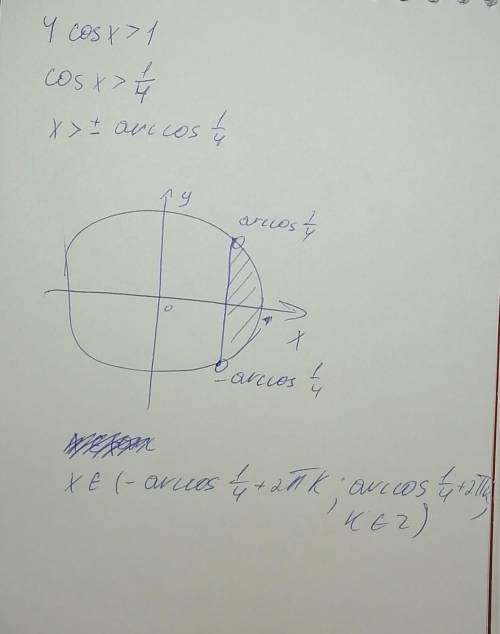 4 cosx>1
cosx> 1/4
x>± arccos 1/4
y
arccos 1/4
0
x
-arccos 1/4
x∈(-arccos 1/4+2πK; arccos 1/4+2πK,
K∈Z)